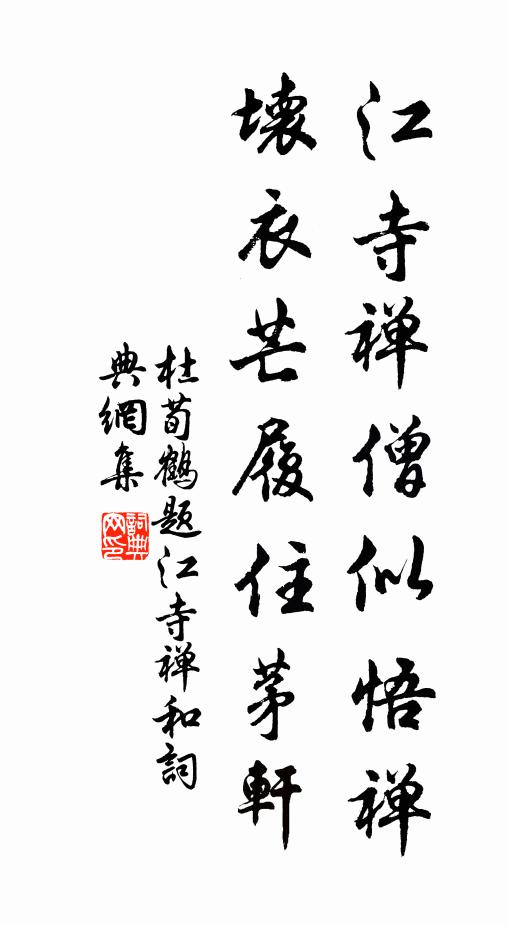 江寺禅僧似悟禅
壊衣芒履住茅軒
杜荀鶴題江寺禅和詞
典網集
詞典
网印